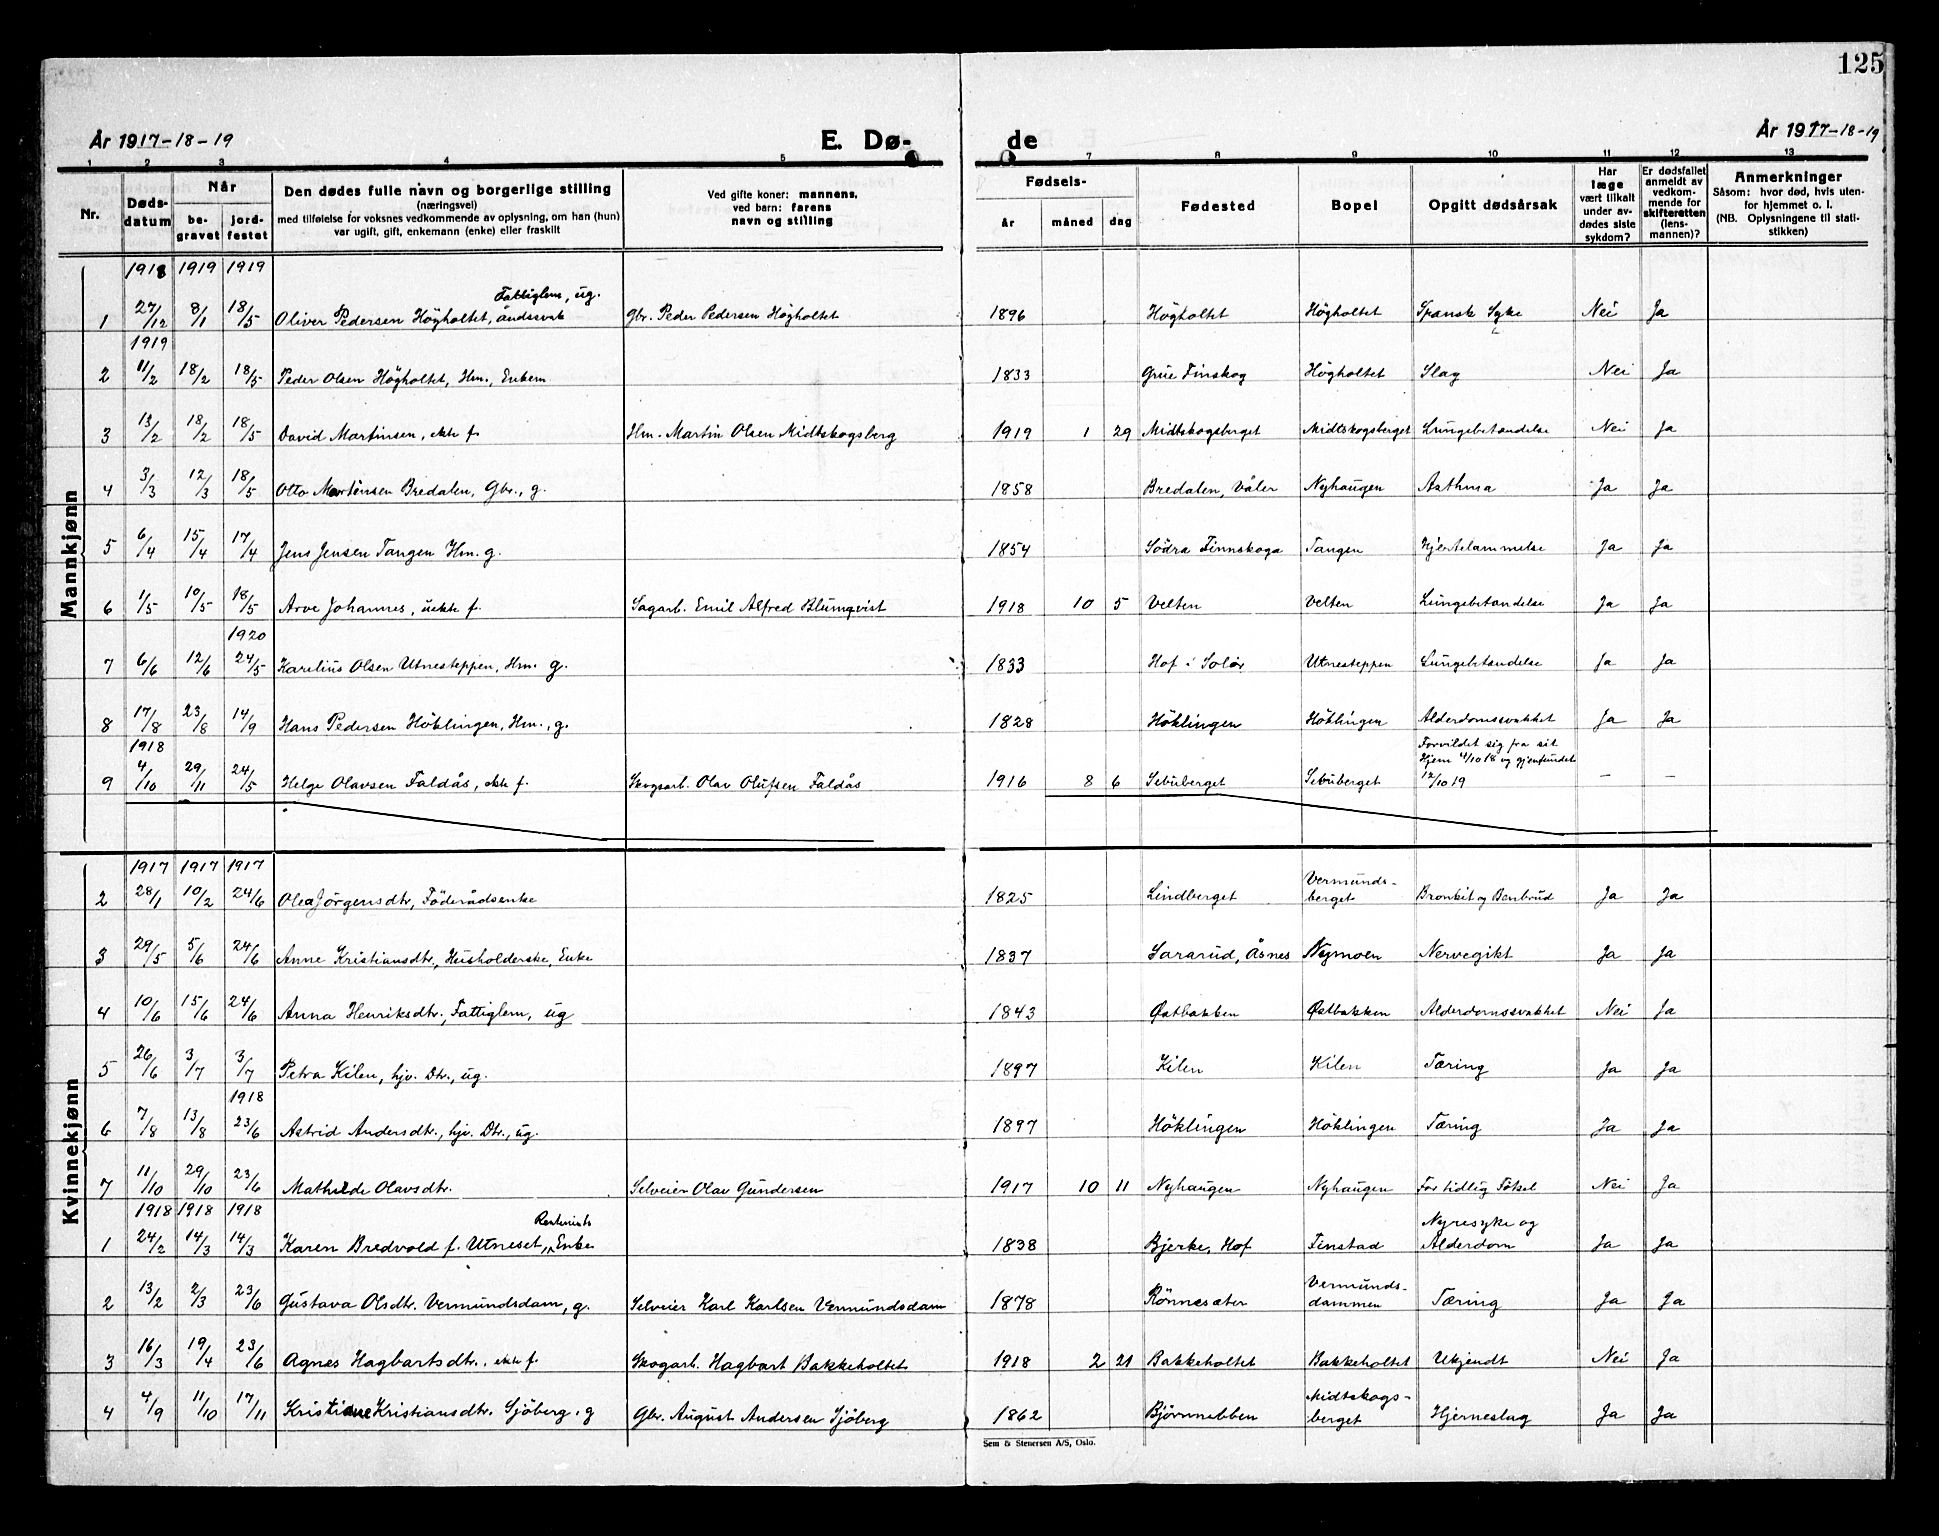 125
År 1917-18-19 E. Dø- de År 1917-18-19
1 2 3 4 5 7 8 9 10 11 12 13
Nr. Dødsdatum Når begravet jordfestet Den dødes fulle navn og borgerlige stilling (næringsvei) med tilføielse for voksnes vedkommende av oplysning, om han (hun) var ugift, gift, enkemann (enke) eller fraskilt Ved gifte koner: mannens, ved barn: farens navn og stilling Fødsels- år måned dag Fødested Bopel Opgitt dødsårsak Har læge vært tilkalt under avdødes siste sykdom? Er dødsfallet anmeldt av vedkommende for skifteretten (lensmannen)? Anmerkninger Såsom: hvor død, hvis utenfor hjemmet o. l. (NB. Oplysningene til statistikken)
Mannkjønn
1918 1919 1919
1 27/12 8/1 18/5 Oliver Pedersen Högholtet, Fattiglem, ug. åndssvak Gbr. Peder Pedersen Högholtet 1896 Högholtet Högholtet Spansk Syke Nei Ja
1919
2 11/2 18/2 18/5 Peder Olsen Högholtet, Hm., Enkem 1833 Grue Finskog Högholtet Slag Nei Ja
3 13/2 18/2 18/5 David Martinsen, ekte f. Hm. Martin Olsen Midtskogsberg 1919 1 29 Midtskogsberget Midtskogsberget Lungebetændelse Nei Ja
4 3/3 12/3 18/5 Otto Mortensen Bredalen, Gbr., g. 1858 Bredalen, Våler Nyhaugen Asthma Ja Ja
5 6/4 15/4 17/4 Jens Jensen Tangen Hm. g. 1854 Södra Finnskoga Tangen Hjertelammelse Ja Ja
6 1/5 10/5 18/5 Arve Johannes, uekte f. Sagarb. Emil Alfred Blumqvist 1918 10 5 Velten Velten Lungebetændelse Ja Ja
1920
7 6/6 12/6 24/5 Karelius Olsen Utnesteppen, Hm. g. 1833 Hof i Solör Utnesteppen Lungebetændelse Ja Ja
8 17/8 23/8 14/9 Hans Pedersen Höklingen, Hm., g. 1828 Höklingen Höklingen Alderdomssvakket Ja Ja
1918
9 4/10 29/11 24/5 Helge Olavsen Faldås, ekte f. Skogsarb. Olav Olufsen Faldås 1916 8 6 Sebuberget Sebuberget Forvildet sig fra sit Hjem 4/10 18 og gjenfundet 12/10 19 — —
Kvinnekjønn
1917 1917 1917
2 28/1 10/2 24/6 Olea Jörgensdtr, Föderådsenke 1825 Lindberget Vermundsberget Bronkit og Benbrud Ja Ja
3 29/5 5/6 24/6 Anne Kristiansdtr., Husholderske, Enke 1837 Sararud, Åsnes Nymoen Nervegikt Ja Ja
4 10/6 15/6 24/6 Anna Henriksdtr., Fattiglem, ug 1843 Østbakken Østbakken Alderdomssvakket Nei Ja
5 26/6 3/7 3/7 Petra Kilen, hjv. Dtr., ug. 1897 Kilen Kilen Tæring Ja Ja
1918
6 7/8 13/8 23/6 Astrid Andersdtr., hjv. Dtr., ug. 1897 Höklingen Höklingen Tæring Ja Ja
7 11/10 29/10 23/6 Mathilde Olavsdtr. Selveier Olav Gundersen 1917 10 11 Nyhaugen Nyhaugen For tidlig Fötsel Nei Ja
1918 1918 1918
1 24/2 14/3 14/3 Karen Bredvold f. Utneset, Rentenists Enke 1838 Bjerke, Hof Finstad Nyresyke og Alderdom Ja Ja
2 13/2 2/3 23/6 Gustava Olsdtr. Vermundsdam, g. Selveier Karl Karlsen Vermundsdam 1878 Rönnesæter Vermundsdammen Tæring Ja Ja
3 16/3 19/4 23/6 Agnes Hagbartsdtr., ekte f. Skogarb. Hagbart Bakkeholtet 1918 2 21 Bakkeholtet Bakkeholtet Ukjendt Nei Ja
4 4/9 11/10 17/11 Kristiane Kristiansdtr. Sjöberg, g Gbr. August Andersen Sjöberg 1862 Björnnebben Midtskogsberget Hjerneslag Ja Ja
Sem & Stenersen A/S, Oslo.